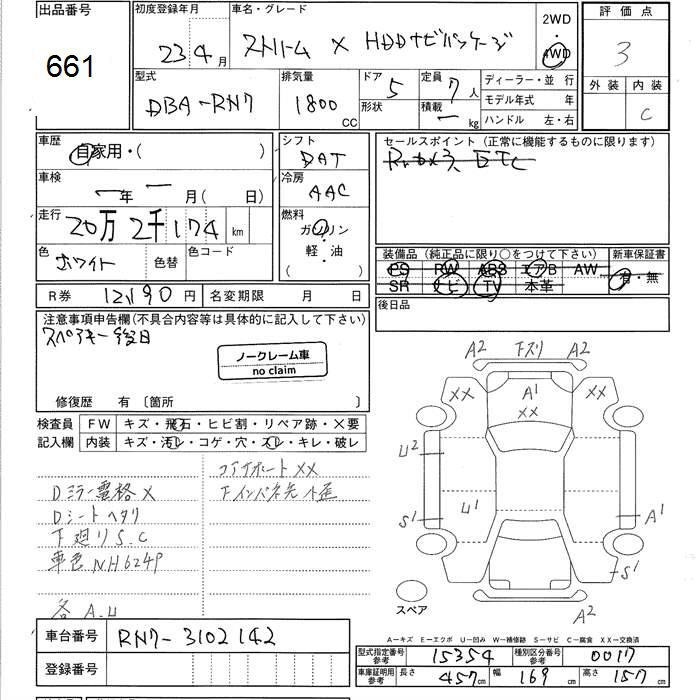 出品番号 初度登録年月 車名・グレード 2WD 評価点
661 23 4月 ストリーム X HDDナビパッケージ 4WD 3
型式 排気量 ドア 5 定員 7人 ディーラー・並行 外装 内装
DBA-RN7 1800CC 形状 積載 ーkg モデル年式 年 C
ハンドル 左・右
車歴 シフト セールスポイント (正常に機能するものに限ります)
自家用・( ) DAT
車検 冷房
ー年 ー月(日) AAC
走行 燃料
20万 2千174 km ガソリン
色 色替 色コード 軽・油 装備品 (純正品に限り○をつけて下さい) 新車保証書
ホワイト ( ) PS RW ABS エアB AW 有・無
R券 12,190円 名変期限 月 日 SR ナビ TV 本革
注意事項申告欄(不具合内容等は具体的に記入して下さい) 後日品
スペアキー後日
ノークレーム車
no claim
修復歴 有〔箇所 〕
検査員 FW キズ・飛石・ヒビ割・リペア跡・×要
記入欄 内装 キズ・汚レ・コゲ・穴・スレ・キレ・破レ
コアサポートXX
Dミラー X
Dシートヘタリ
下廻りS.C
車色NH624P
各A.U
A2 下スリ A2
XX A1 XX
XX
U2
S1 U1 A1
S1
スペア A2
A-キズ E-エクボ U-凹み W-補修跡 S-サビ C-腐食 XX-交換済
車台番号 RN7-3102142
登録番号
型式指定番号 参考 15354 種別区分番号 参考 0017
車庫証明用 参考 長さ 457cm 幅 169cm 高さ 157cm